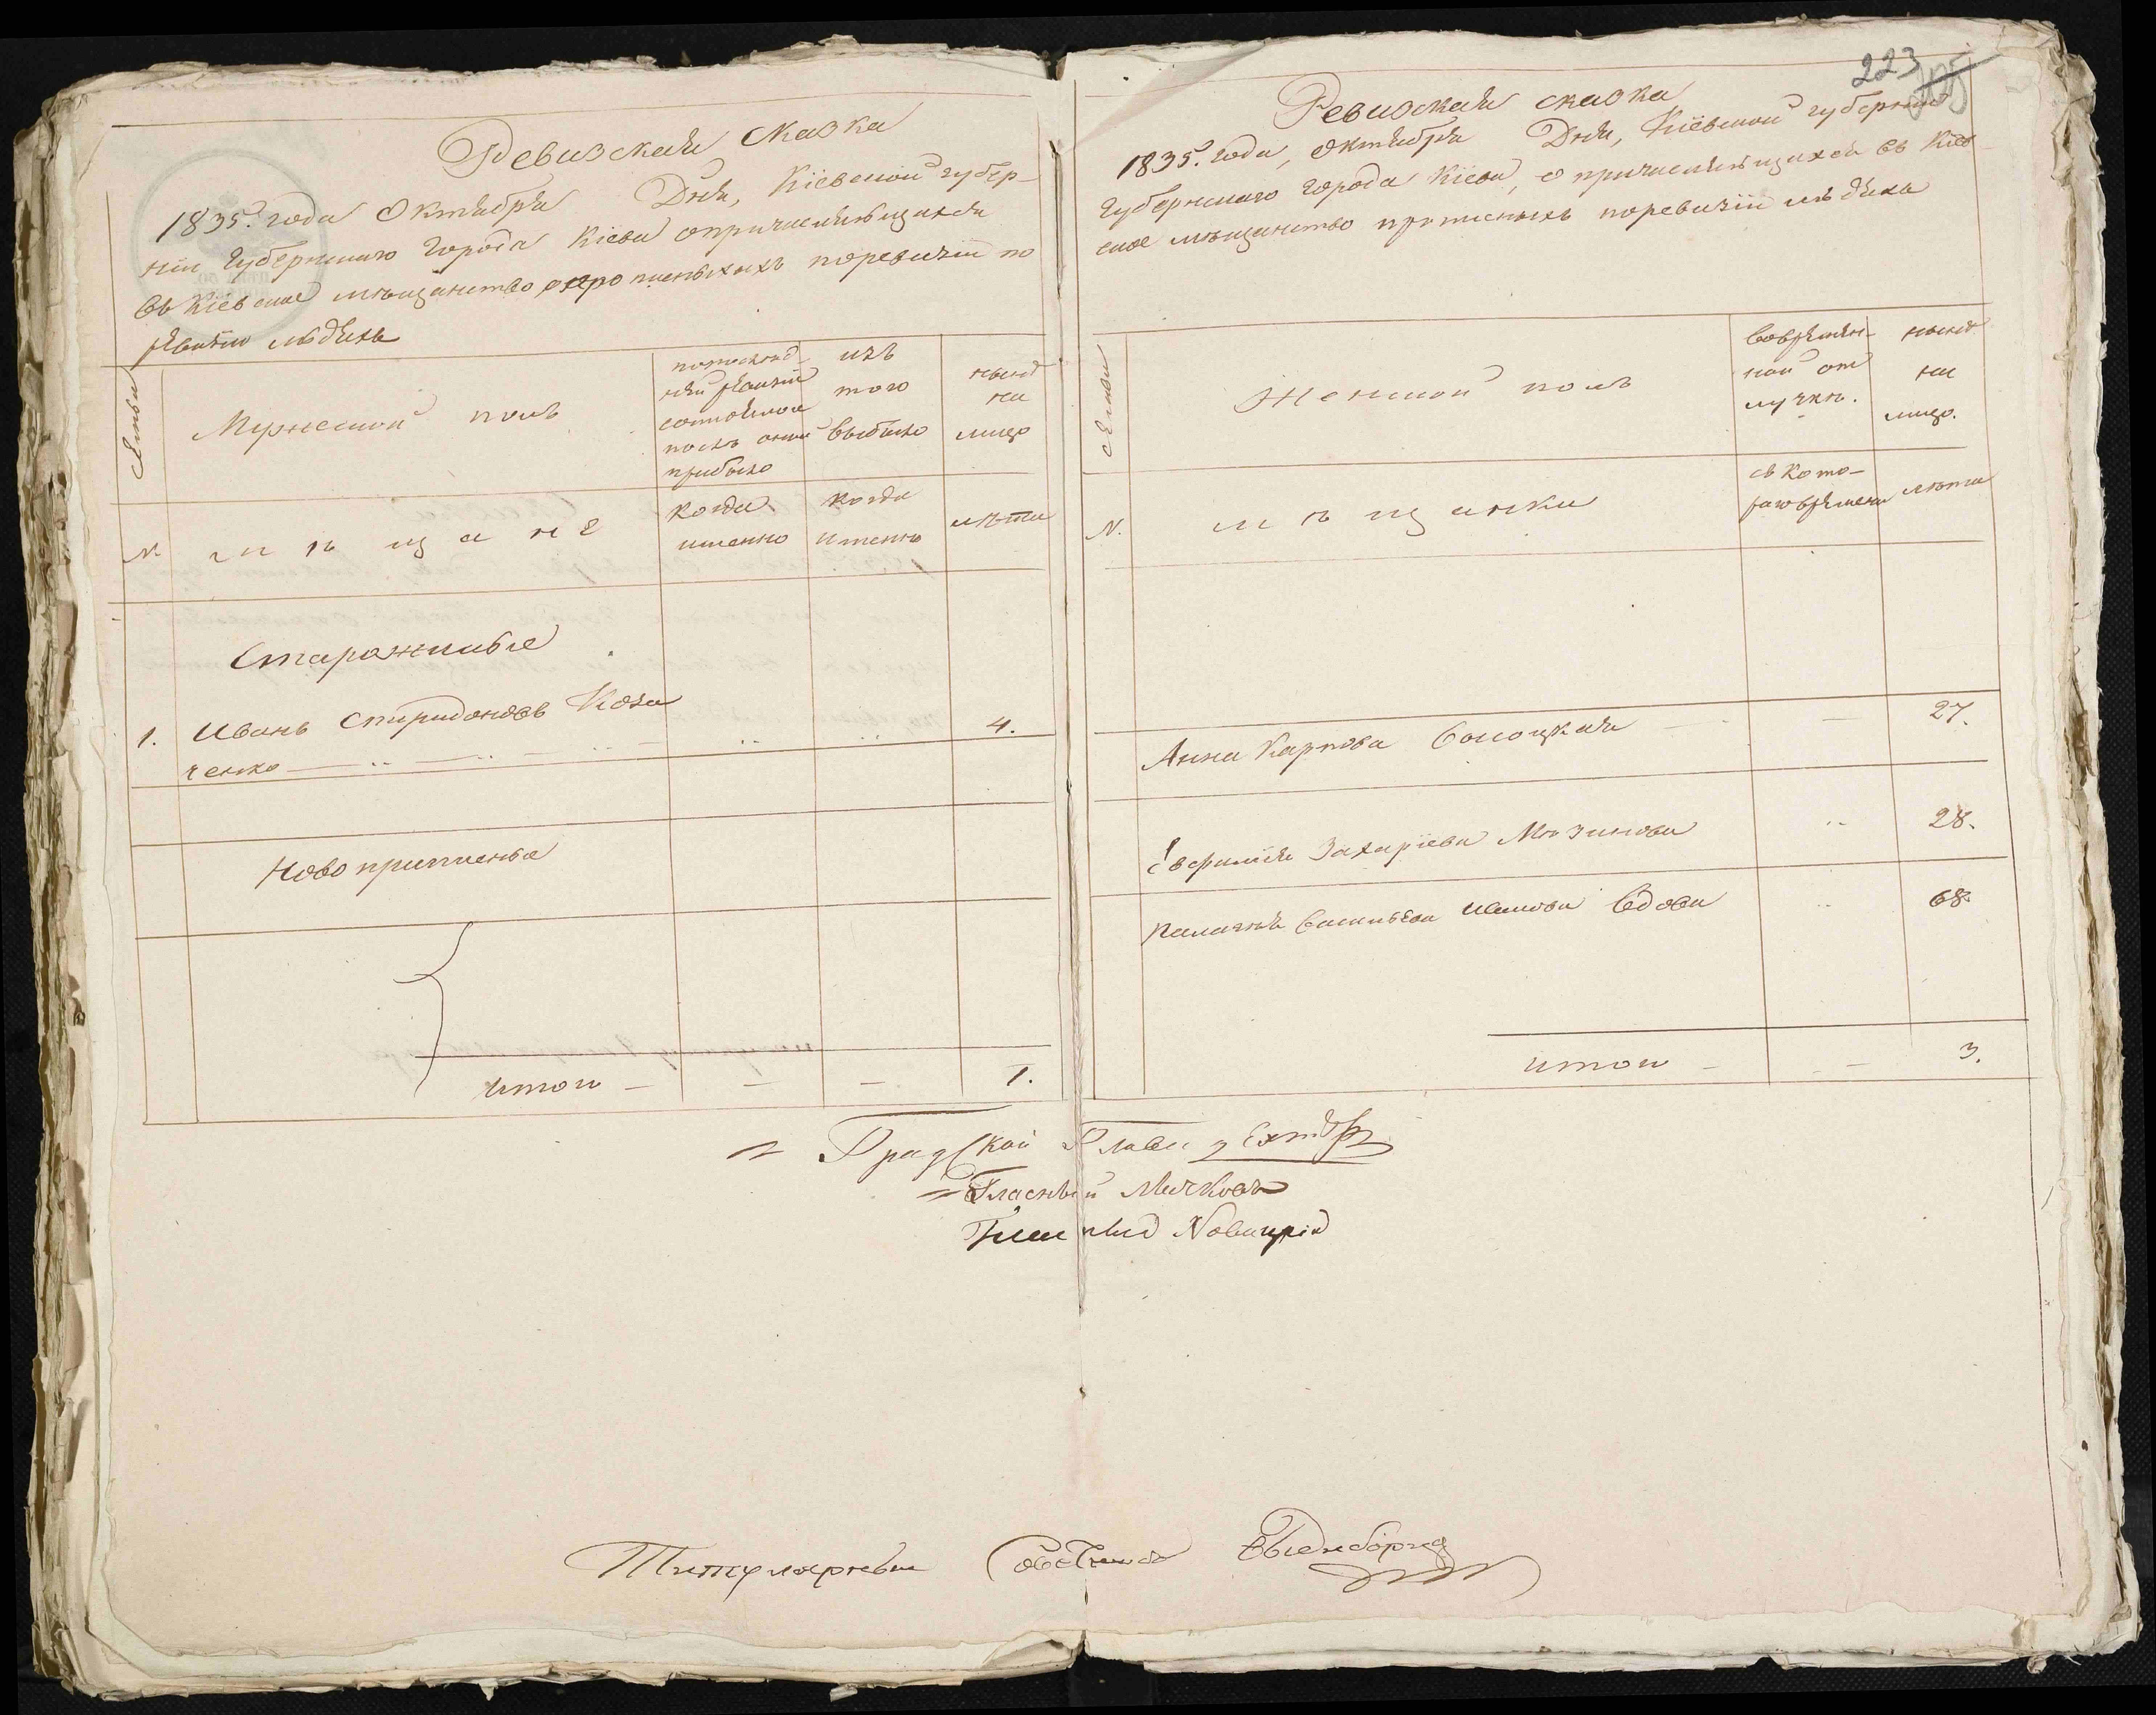 Ревизская сказка
1835. года Октября Дня, Кіевской губер-
ніи Губернскаго Города Кіева опричисляющихся
въ Кіевское мѣщанство пропис­ныхъ поревизіи по
людяхъ
Семьи
Мужеской полъ
попослѣд-
ней ревизіи
состояло и
послѣ оной
прибыло
изъ
того
выбыло
нынѣ
на
лицо
№
мѣщане
когда
именно
когда
именно
лѣта
Старожилые
1. Иванъ Спиридоновъ Коза
ченко 4.
Новоприписные
Итого — — — 1.
223
Ревизская сказка
1835. года, Октября Дня, Кіевской губерніи
Губернскаго города Кіева, о причисляющихся въ Кіев
ское мѣщанство прописныхъ поревизіи людяхъ
Семьи
Женской полъ
вовремен-
ной от
лучкѣ.
нынѣ
на
лицо.
№.
мѣщанки
съ кото-
раго времени
лѣта
Анна Карпова — 27.
Евфимія Захаріева 28.
Васильева Вдова 68.
Итого — — 3.
Градской Глава
Гласный
Гласный Новицкій
Титулярный Советникъ